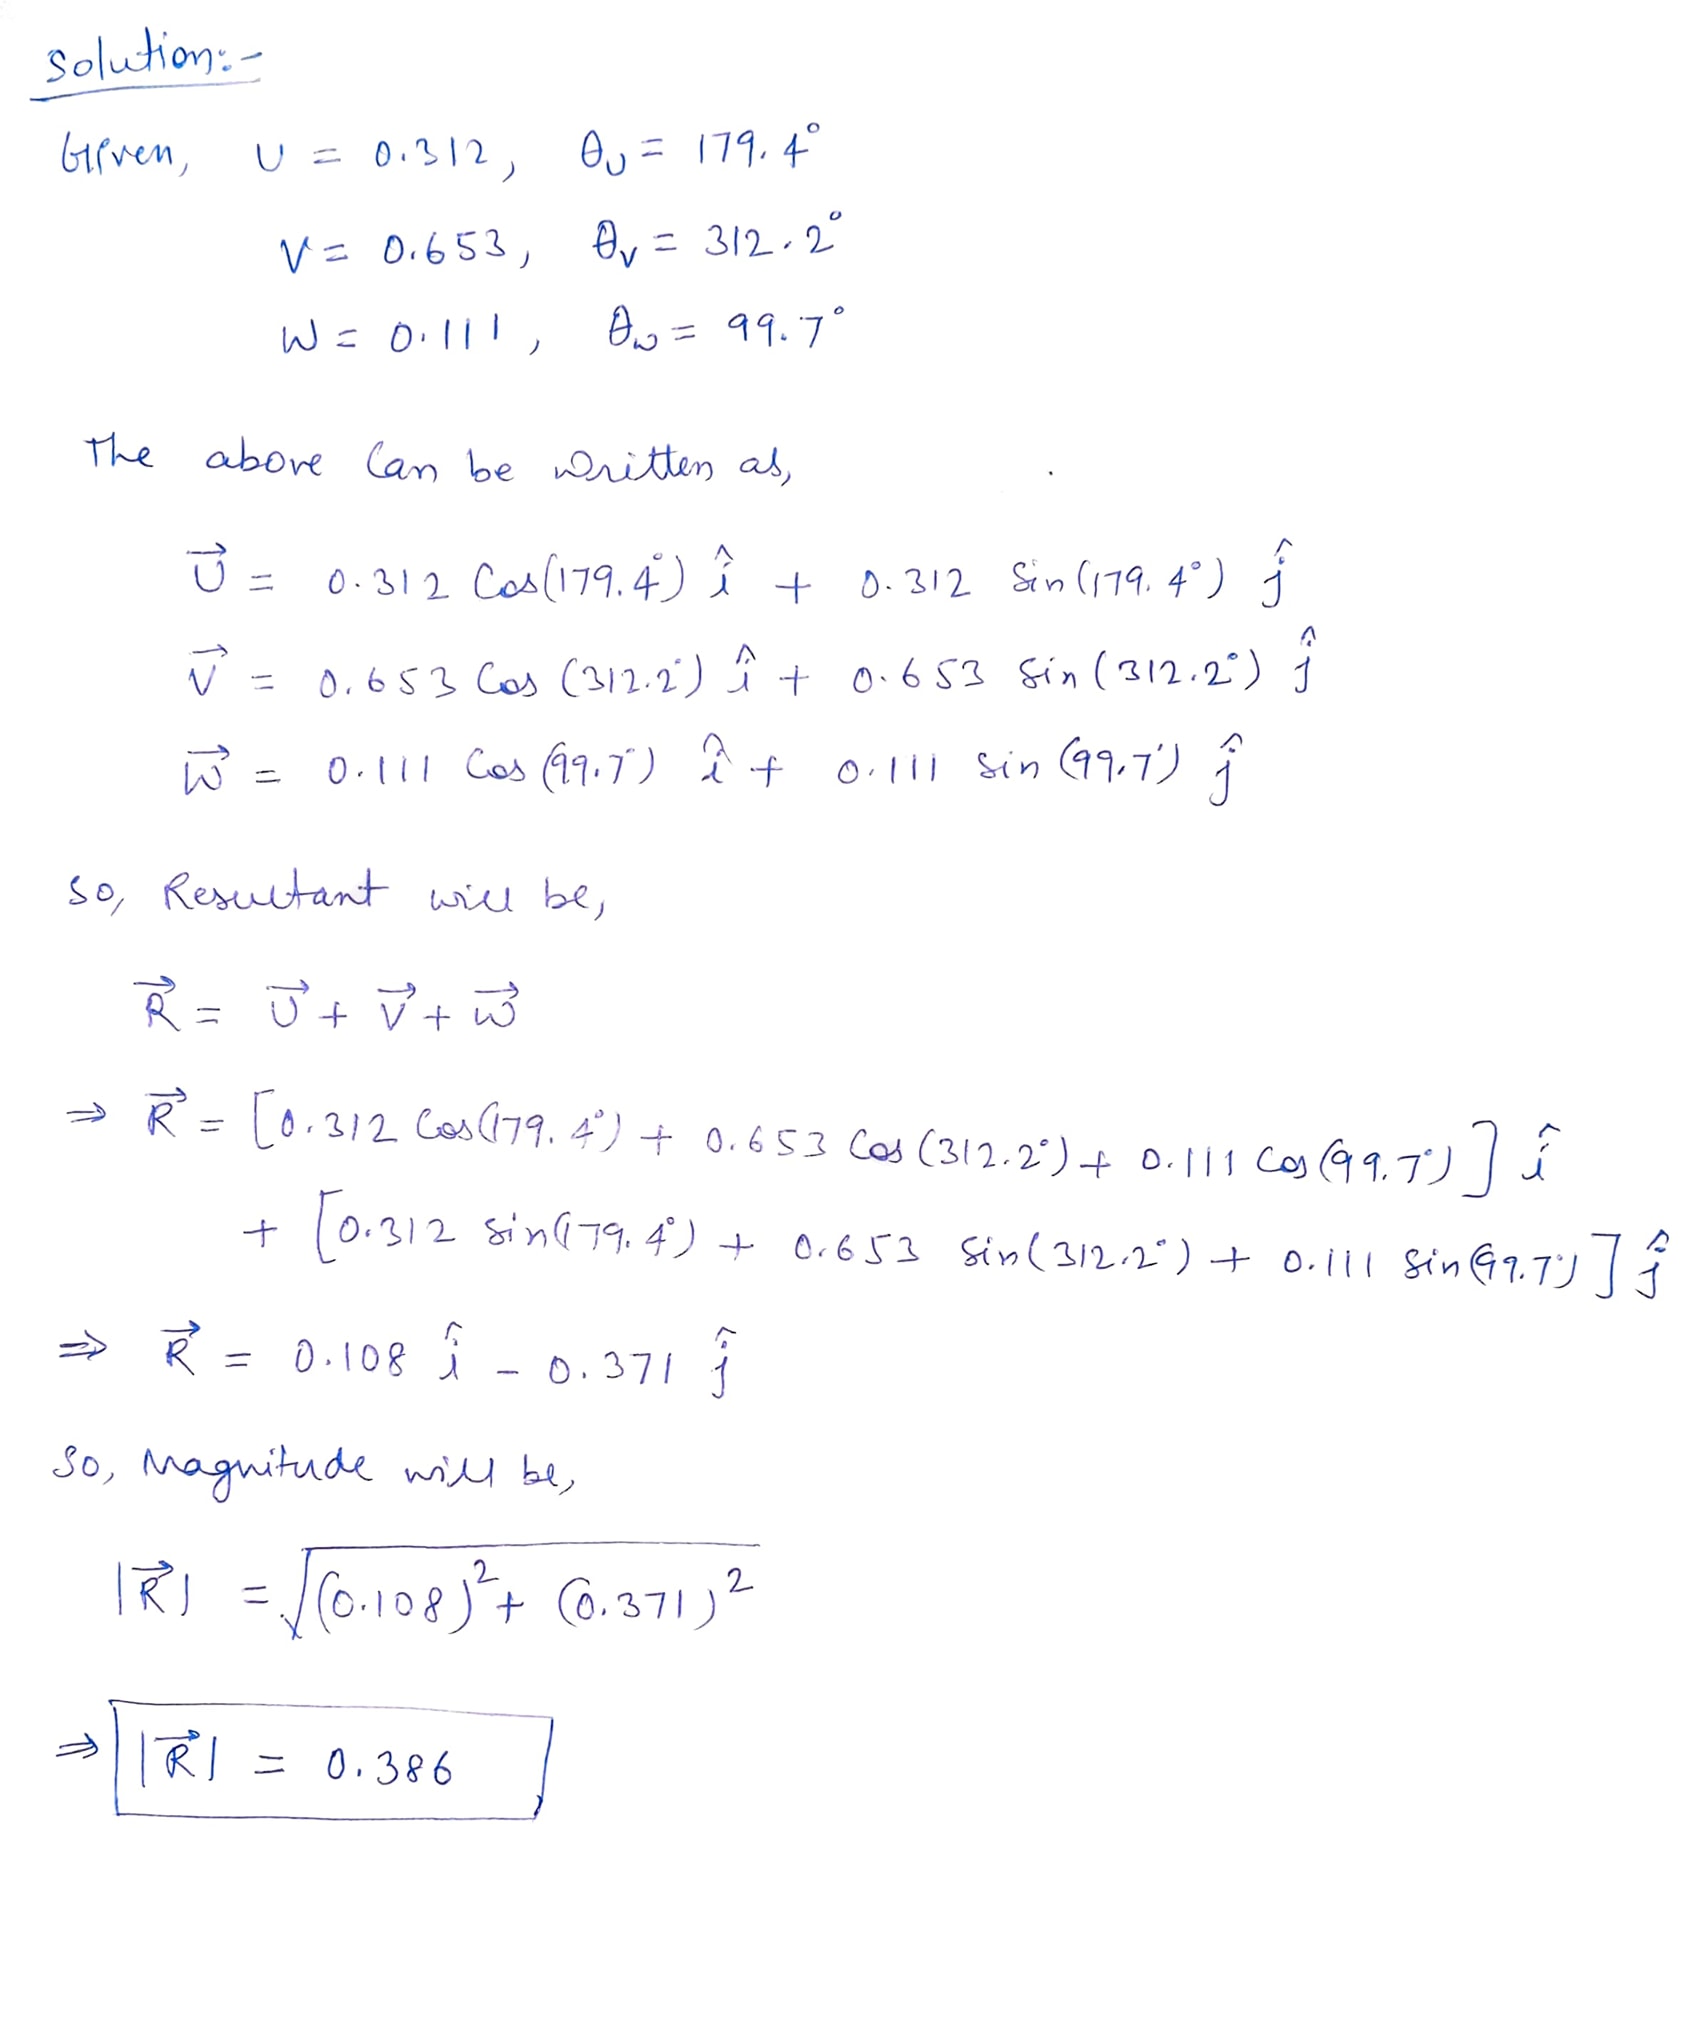 Solution:-
Given, U = 0.312, θ_U = 179.4°
V = 0.653, θ_V = 312.2°
W = 0.111, θ_W = 99.7°
The above Can be written as,
U⃗ = 0.312 Cos(179.4°) î + 0.312 Sin(179.4°) ĵ
V⃗ = 0.653 Cos (312.2°) î + 0.653 Sin (312.2°) ĵ
W⃗ = 0.111 Cos (99.7°) î + 0.111 Sin (99.7°) ĵ
So, Resultant will be,
R⃗ = U⃗ + V⃗ + W⃗
⇒ R⃗ = [0.312 Cos(179.4°) + 0.653 Cos (312.2°) + 0.111 Cos (99.7°)] î
+ [0.312 Sin(179.4°) + 0.653 Sin(312.2°) + 0.111 Sin(99.7°)] ĵ
⇒ R⃗ = 0.108 î - 0.371 ĵ
So, Magnitude will be,
|R⃗| = √((0.108)² + (0.371)²)
⇒ |R⃗| = 0.386